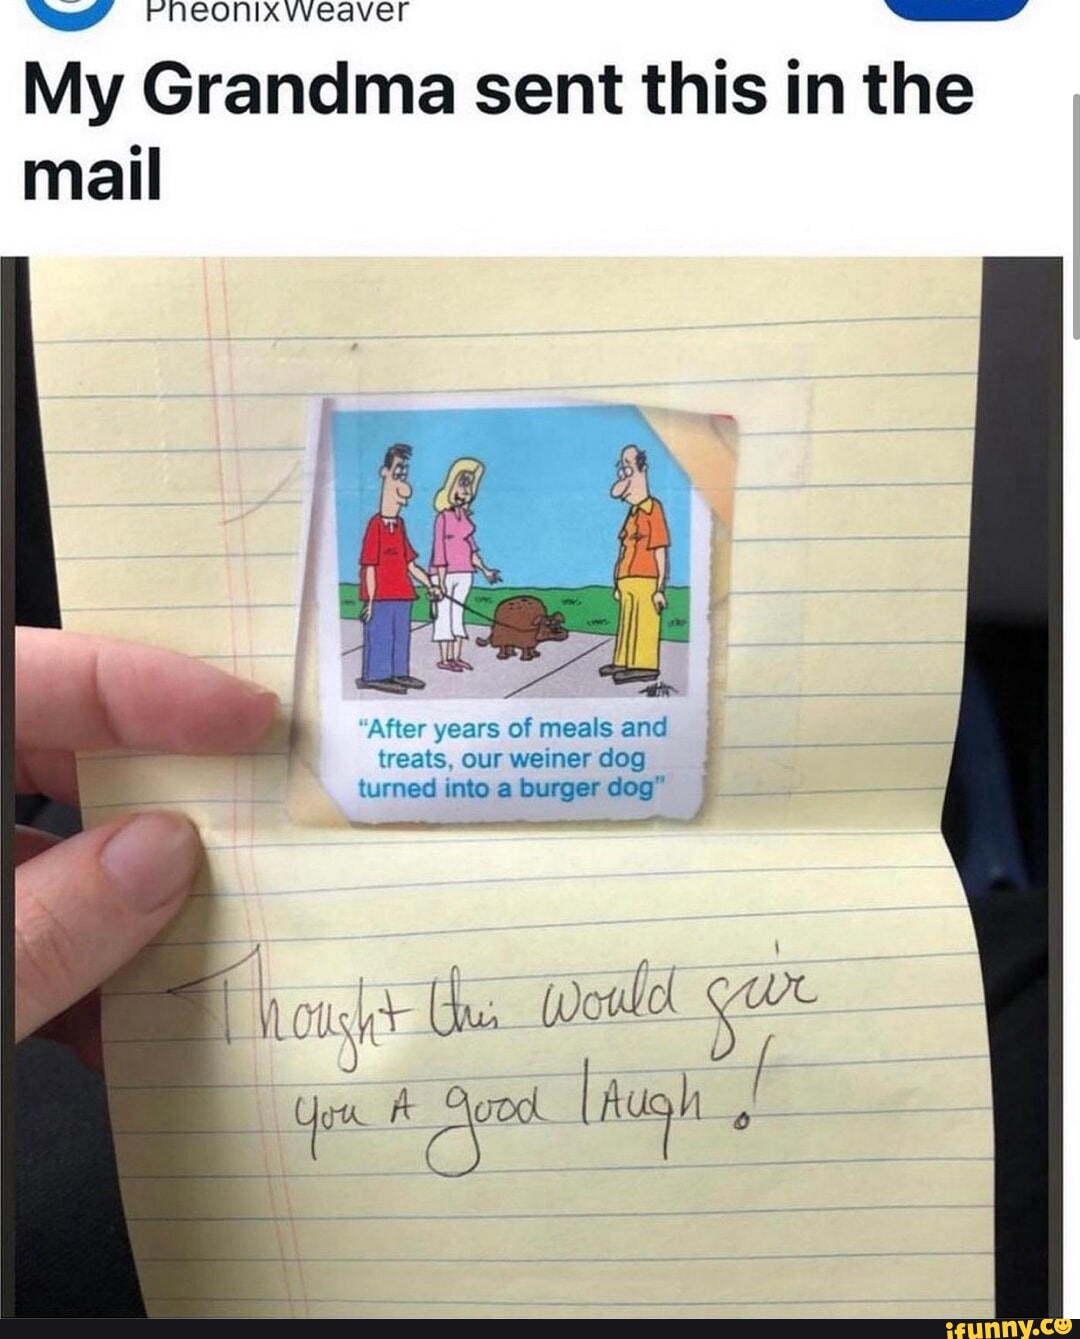 PheonixWeaver
My Grandma sent this in the
mail
"After years of meals and
treats, our weiner dog
turned into a burger dog"
Thought this would give
you A good lAugh!
ifunny.co